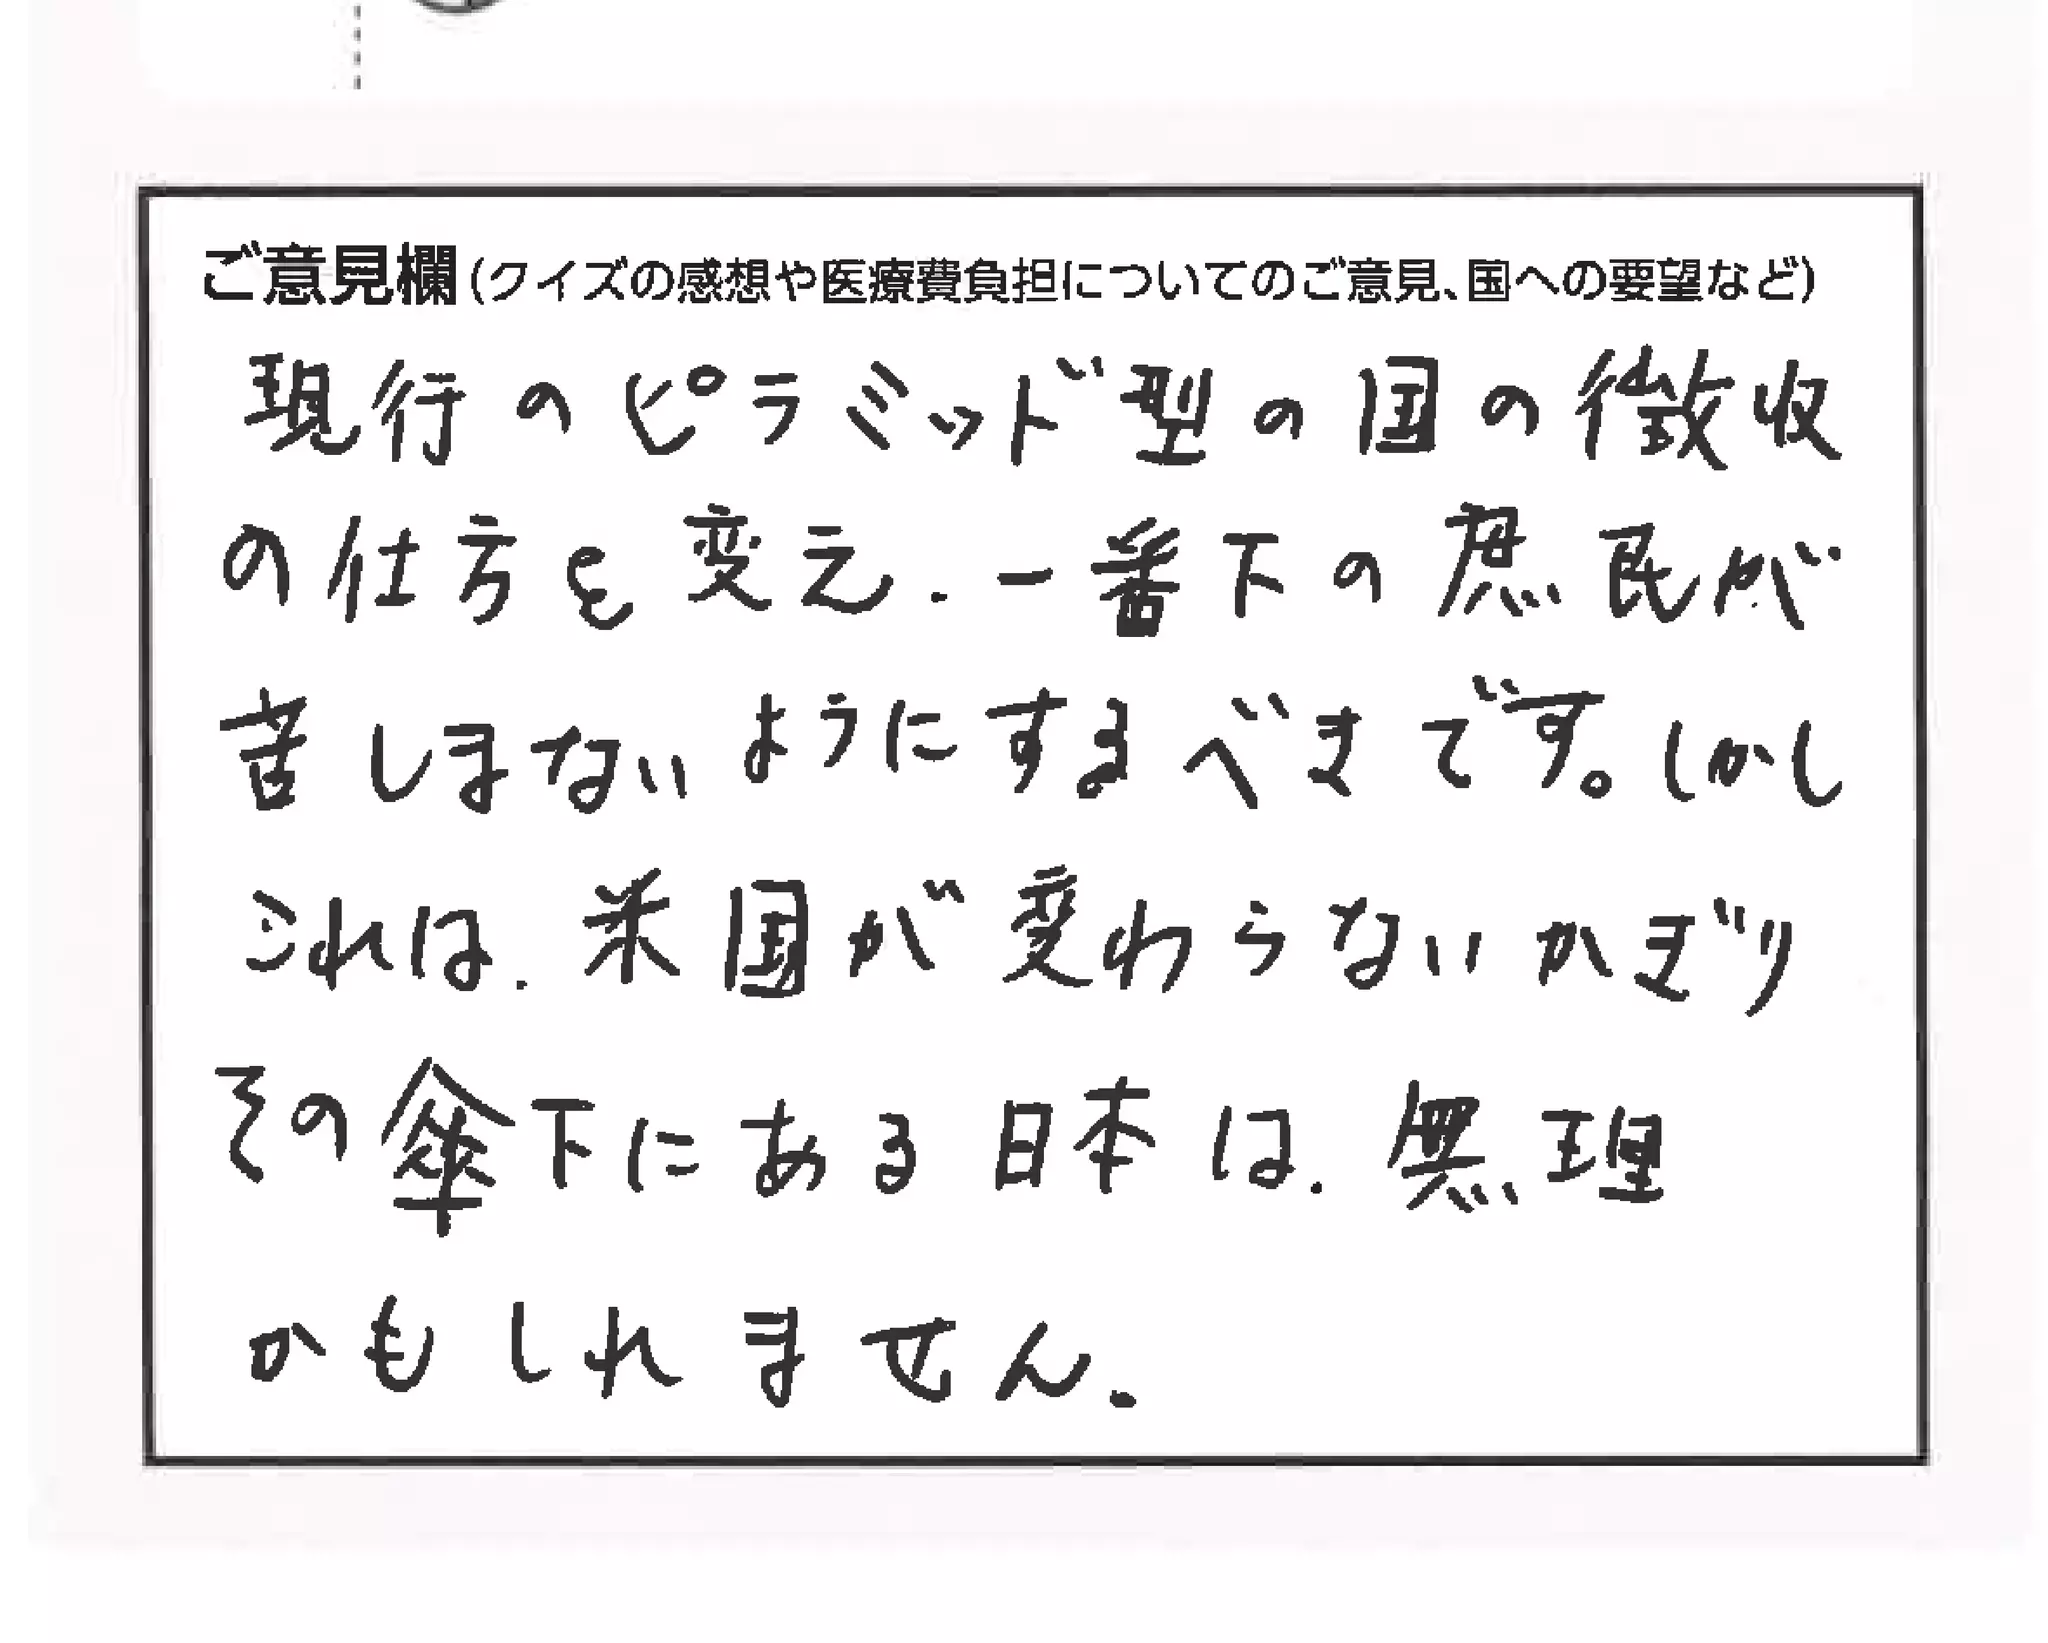 ご意見欄(クイズの感想や医療費負担についてのご意見、国への要望など)
現行のピラミッド型の国の徴収
の仕方を変え、一番下の庶民が
苦しまないようにするべきです。しかし
これは、米国が変わらないかぎり
その傘下にある日本は、無理
かもしれません。